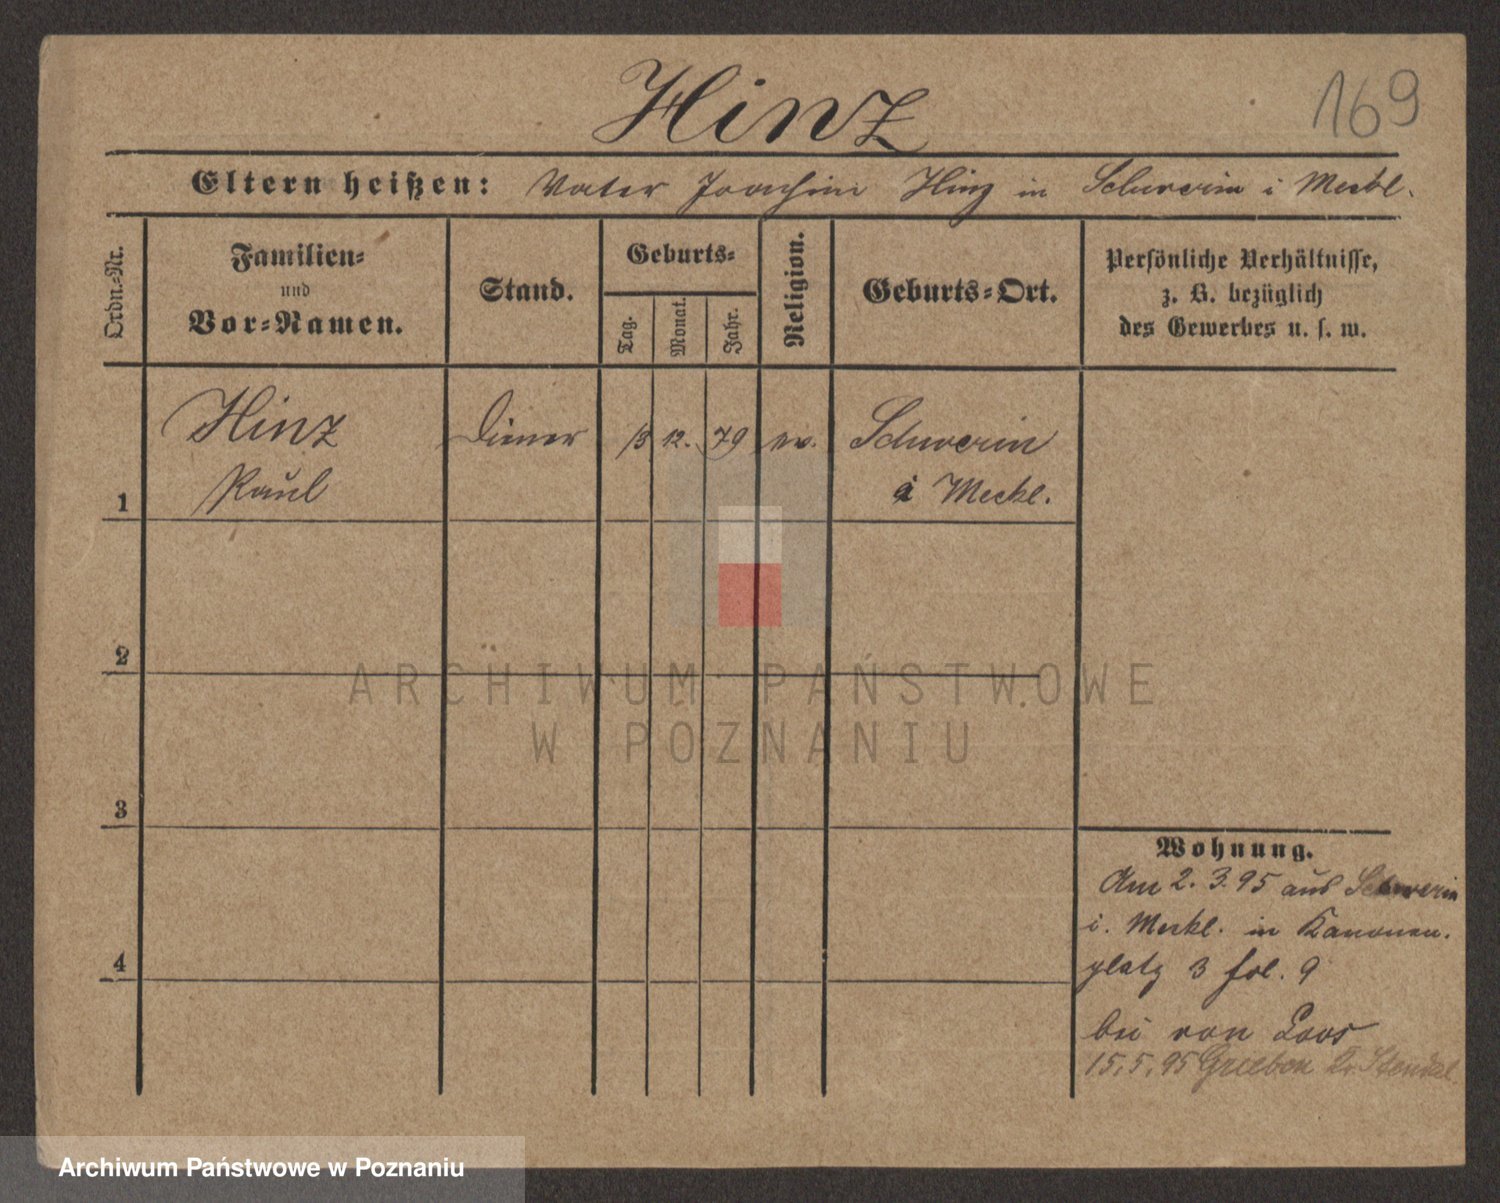 Hinz
169
Eltern heißen: Vater Joachim Hinz in Schwerin i Meckl.
Ordn.-Nr.
Familien-
und
Vor-Namen.
Stand.
Geburts-
Tag.
Monat.
Jahr.
Religion.
Geburts-Ort.
Persönliche Verhältnisse,
z. B. bezüglich
des Gewerbes u. s. w.
Hinz
Diener 13 12. 79 ev. Schwerin
1 Paul
i Meckl.
2
ARCHIWUM PAŃSTWOWE
W POZNANIU
3
Wohnung.
Am 2. 3. 95 aus Schwerin
i. Meckl. in Kanonen.
4
platz 3 fol. 9
bei von Loos
15. 5. 95 Stendal
Archiwum Państwowe w Poznaniu